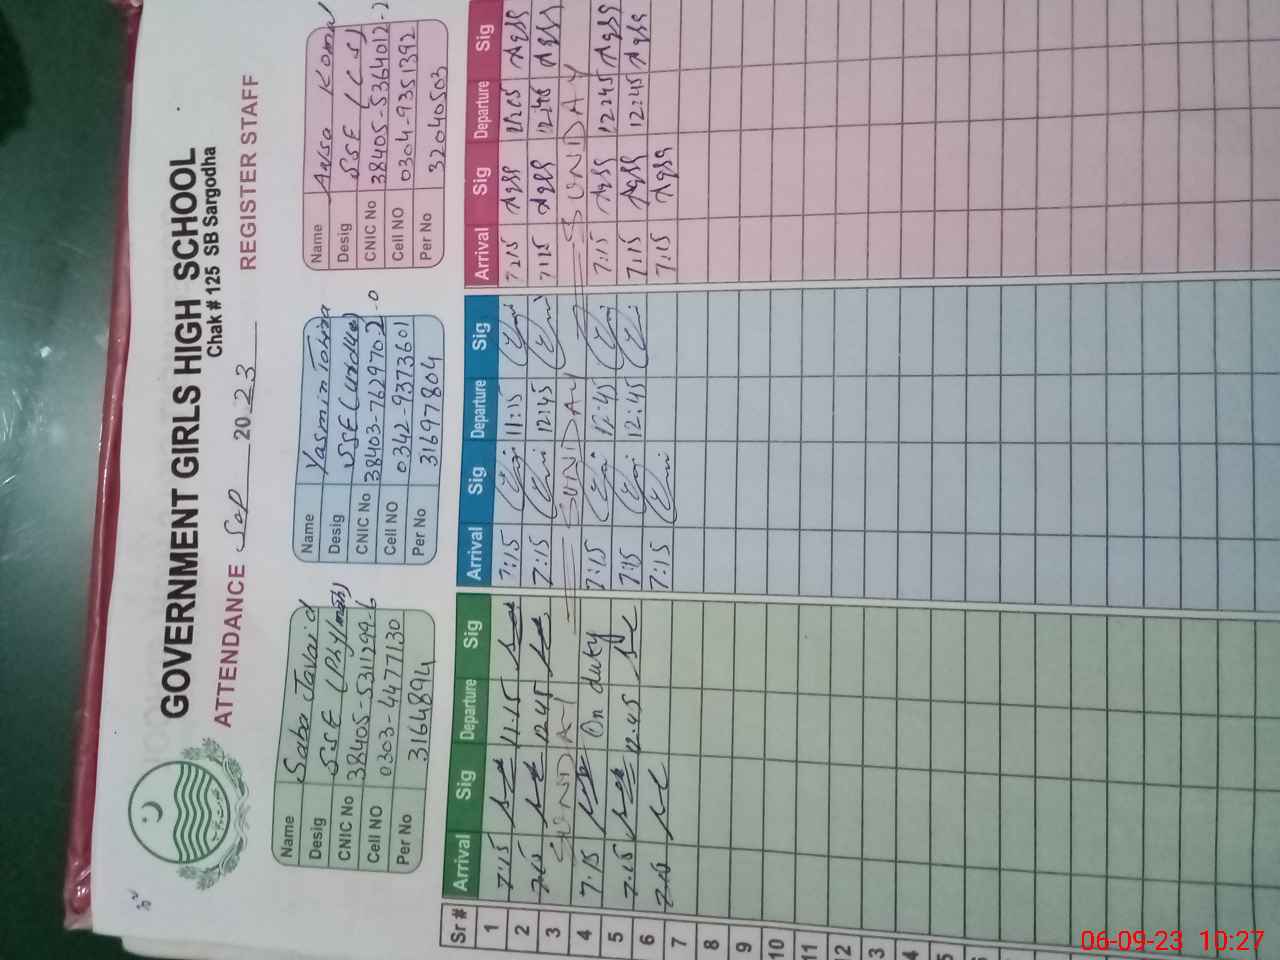 GOVERNMENT GIRLS HIGH SCHOOL
Chak # 125 SB Sargodha
ATTENDANCE Sep 2023 REGISTER STAFF
Name Saba Javaid
Desig SSE (Phy/math)
CNIC No 38405-5311299-6
Cell NO 0303-4477130
Per No 3164894
Name Yasmin Tahira
Desig SSE (Urdu)
CNIC No 38403-7629702-0
Cell NO 0342-9373601
Per No 31697804
Name Ansa Komal
Desig SSE (CS)
CNIC No 38405-5364012-2
Cell NO 0304-9351392
Per No 32040503
Sr # Arrival Sig Departure Sig Arrival Sig Departure Sig Arrival Sig Departure Sig
1 7:15 11:15 7:15 11:15 7:15 11:15
2 7:15 12:45 7:15 12:45 7:15 12:45
3 SUNDAY SUNDAY SUNDAY
4 7:15 On duty 7:15 12:45 7:15 12:45
5 7:15 12:45 7:15 12:45 7:15 12:45
6 7:15 7:15 7:15
7
8
9
10
11
12
3
4
5
06-09-23 10:27